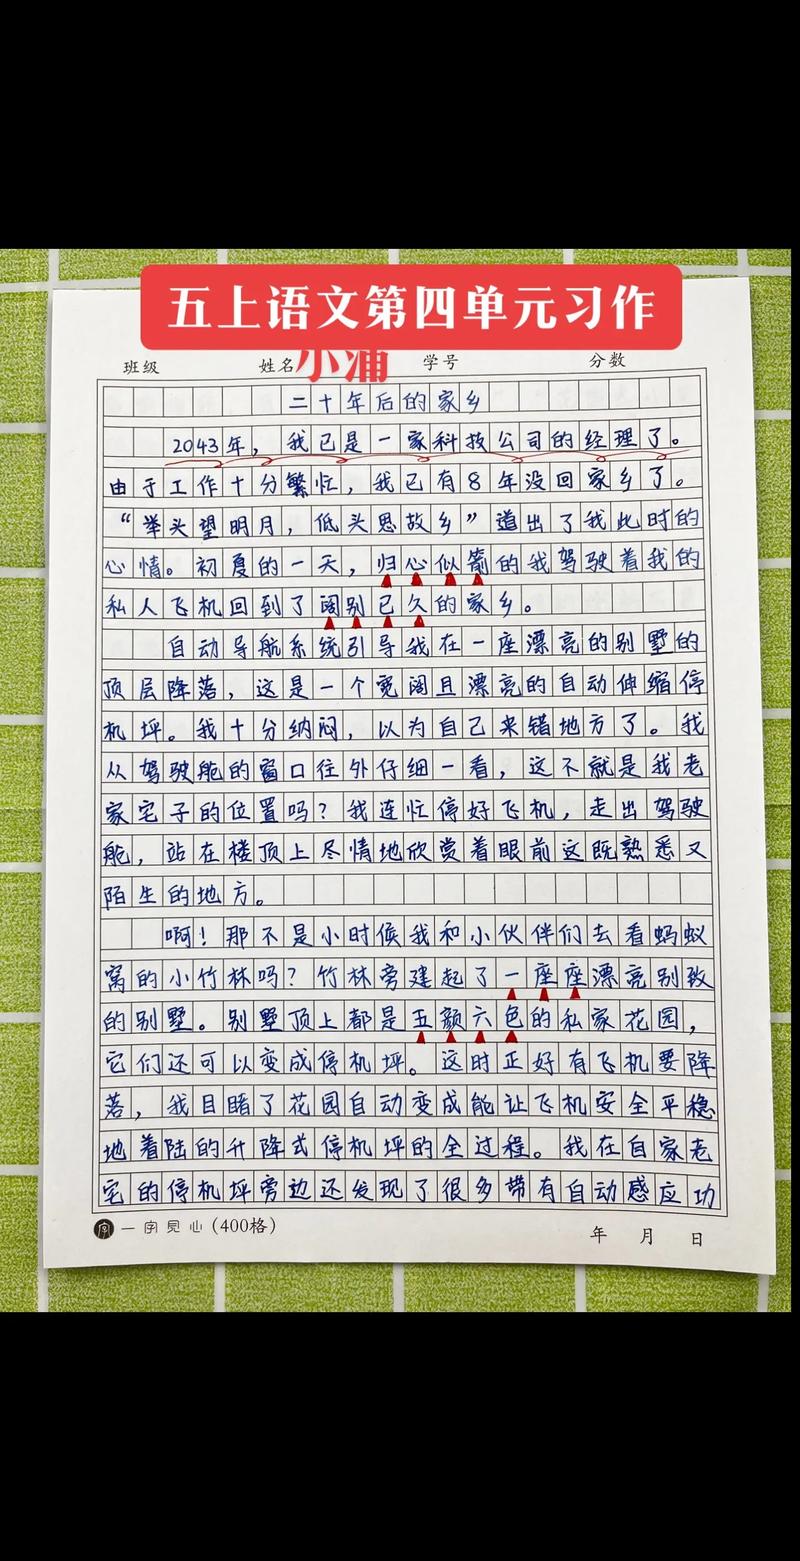 五上语文第四单元习作
班级 姓名 小浦 学号 分数
二十年后的家乡
2043年，我已是一家科技公司的经理了。
由于工作十分繁忙，我已有8年没回家乡了。
“举头望明月，低头思故乡”道出了我此时的
心情。初夏的一天，归心似箭的我驾驶着我的
私人飞机回到了阔别已久的家乡。
自动导航系统引导我在一座漂亮的别墅的
顶层降落，这是一个宽阔且漂亮的自动伸缩停
机坪。我十分纳闷，以为自己来错地方了。我
从驾驶舱的窗口往外仔细一看，这不就是我老
家宅子的位置吗？我连忙停好飞机，走出驾驶
舱，站在楼顶上尽情地欣赏着眼前这既熟悉又
陌生的地方。
啊！那不是小时候我和小伙伴们去看蚂蚁
窝的小竹林吗？竹林旁建起了一座座漂亮别致
的别墅。别墅顶上都是五颜六色的私家花园，
它们还可以变成停机坪。这时正好有飞机要降
落，我目睹了花园自动变成能让飞机安全平稳
地着陆的升降式停机坪的全过程。我在自家老
宅的停机坪旁边还发现了很多带有自动感应功
字 一字见心（400格） 年 月 日